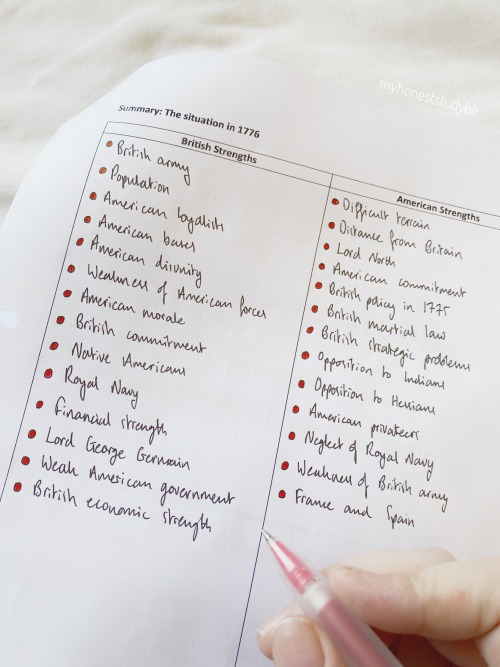 myhoneststudyblr
Summary: The situation in 1776
British Strengths
British army
Population
American loyalists
American bases
American disunity
Weakness of American forces
American morale
British commitment
Native Americans
Royal Navy
Financial strength
Lord George Germain
Weak American government
British economic strength
American Strengths
Difficult terrain
Distance from Britain
Lord North
American commitment
British policy in 1775
British martial law
British strategic problems
Opposition to Indians
Opposition to Hessians
American privateers
Neglect of Royal Navy
Weakness of British army
France and Spain